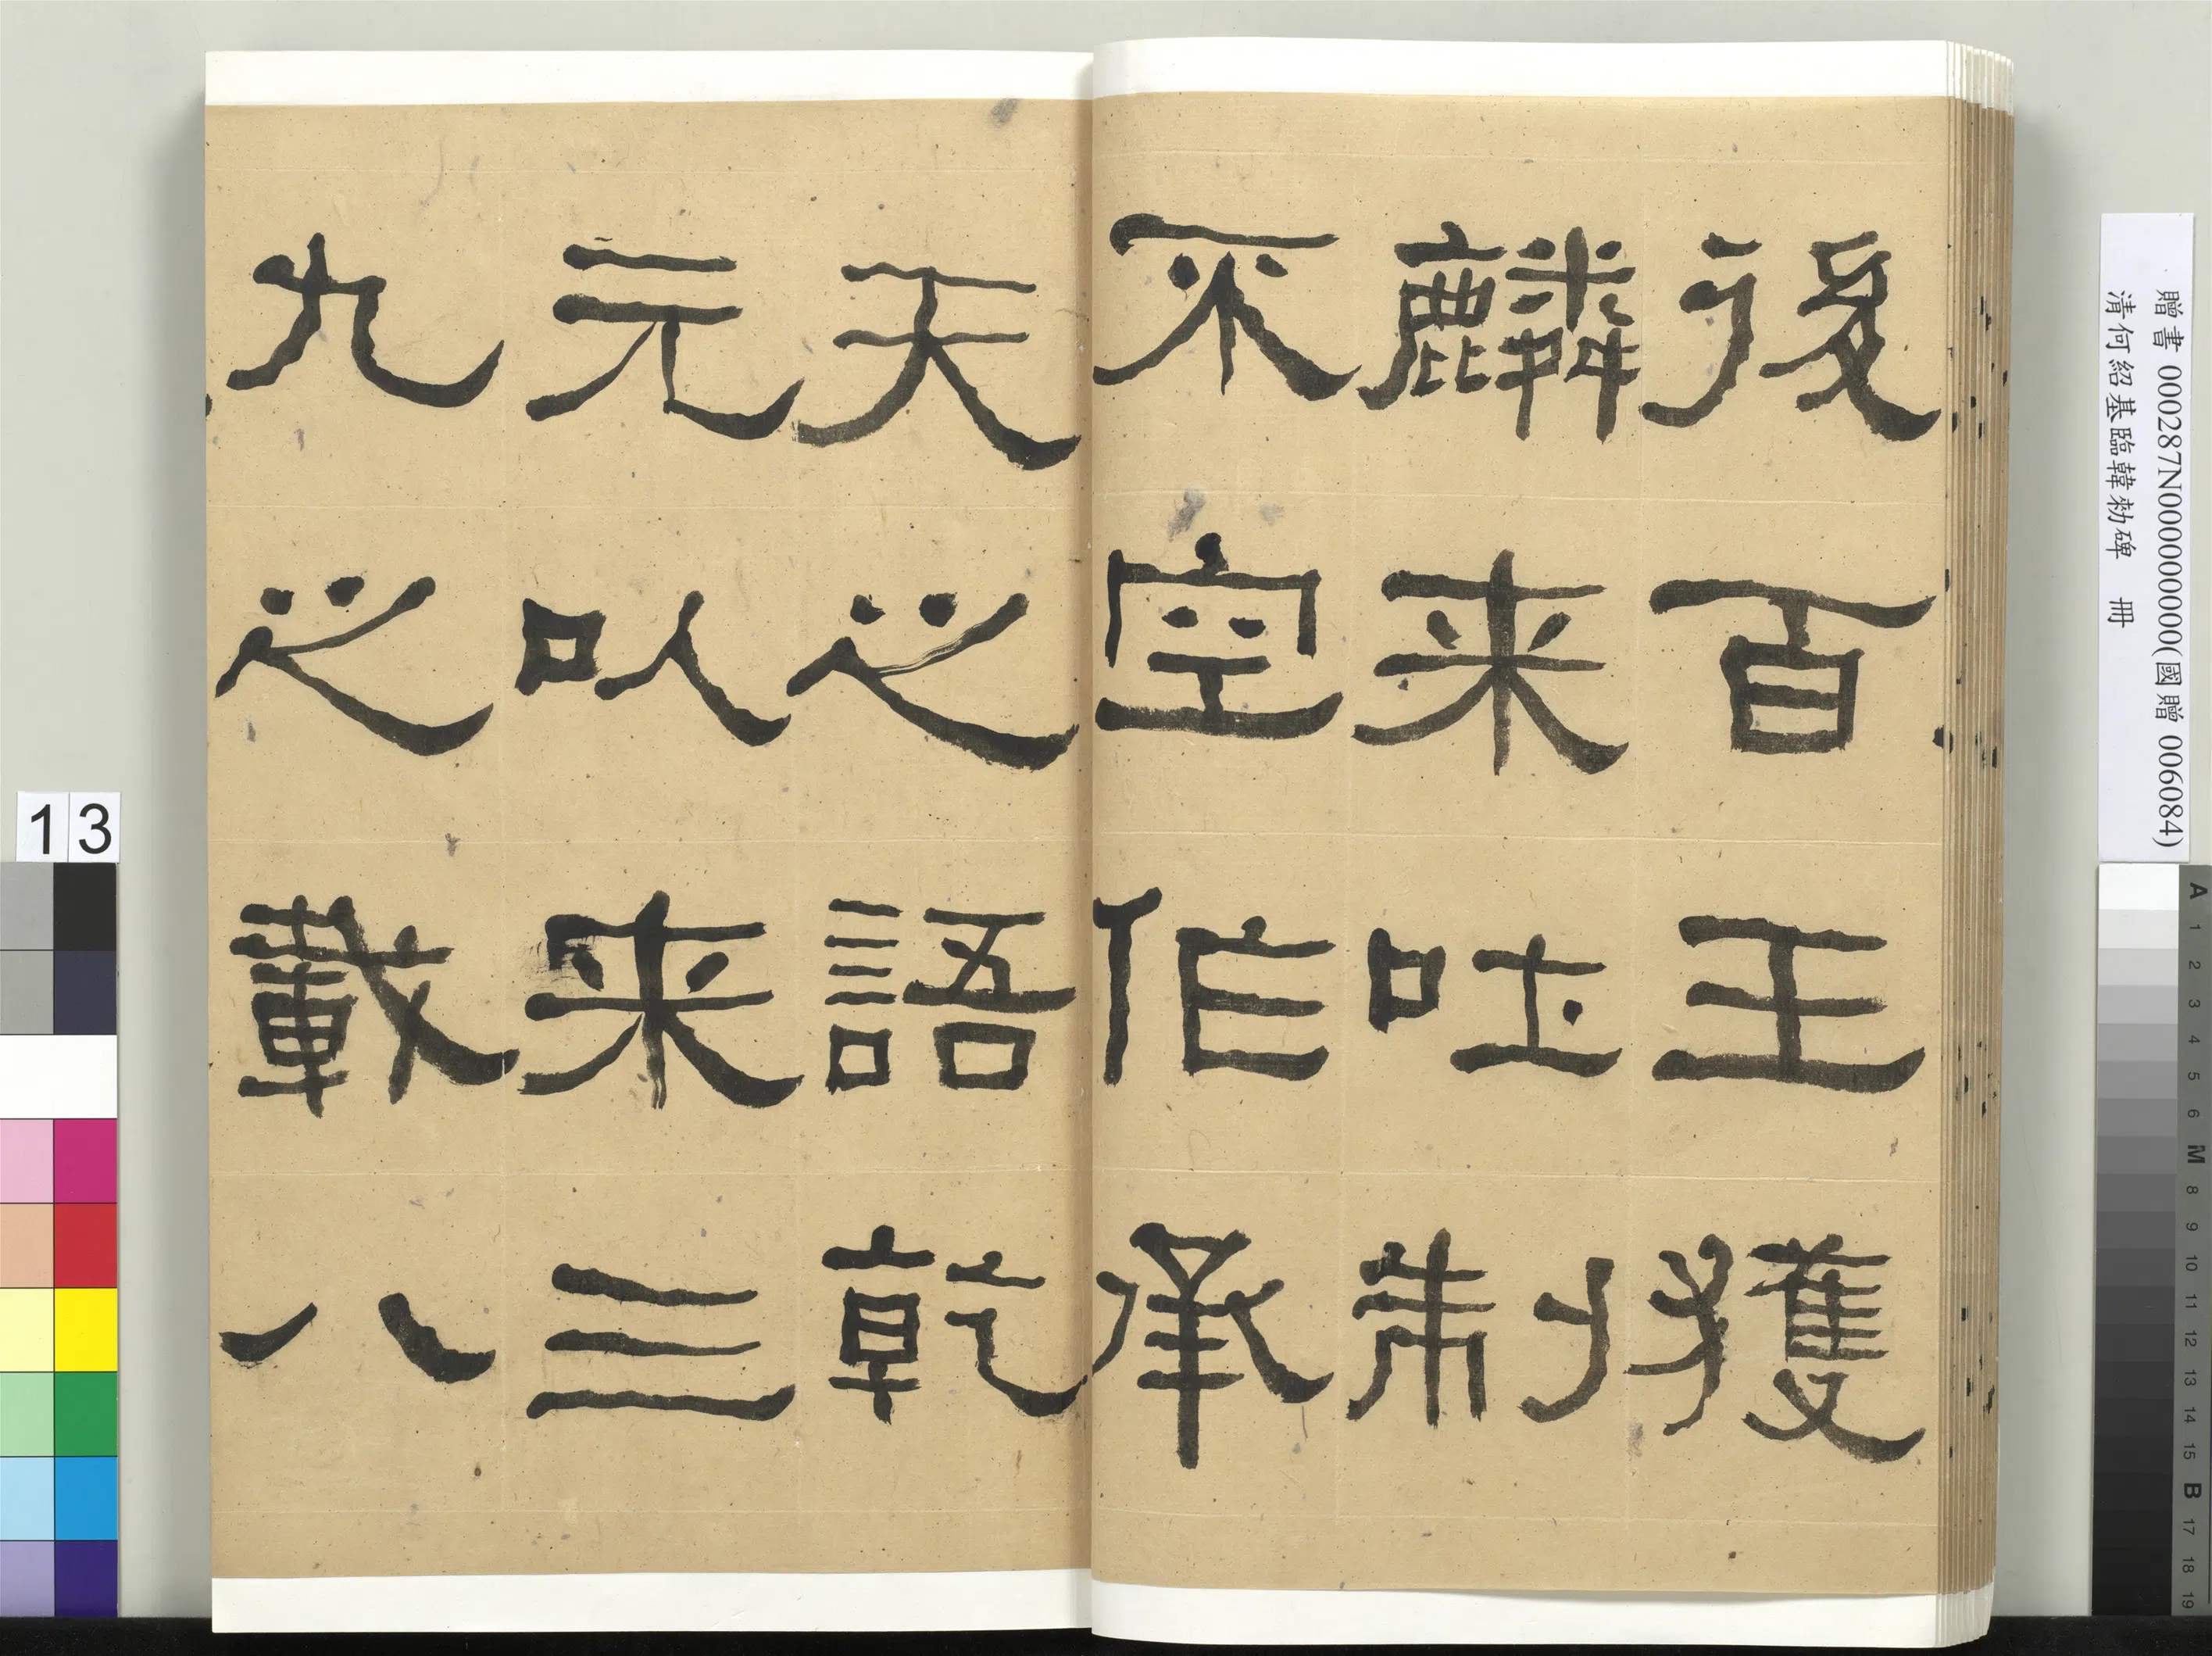 後百王獲
麟来吐制
不空作承
天之語乾
元以来三
九之載八
贈書 000287N000000000(國贈 006084)
清何紹基臨韓勑碑 冊
13
A 1 2 3 4 5 6 M 8 9 10 11 12 13 14 15 B 17 18 19